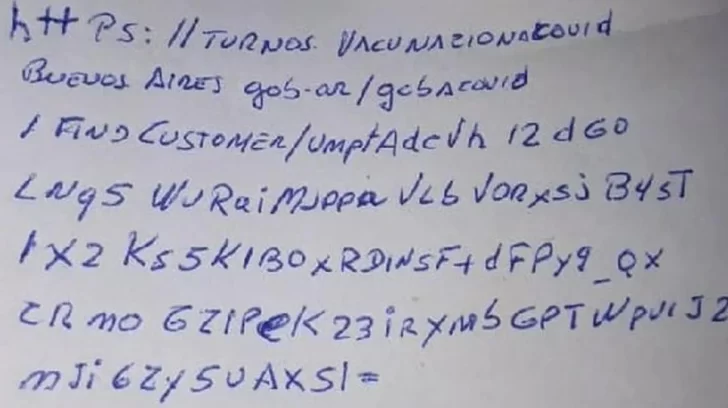 htt Ps: // TURNOS. VACUNACIONACOVId
BUENOS AIRES gob-ar/gcbAcovid
/ FIND CUSTOMER/UmptAdcVh 12 dGO
LNq5 WURaiMJppa VLb VORxsj B4sT
1X2 Ks5K1BOxRDiNSFtdFPy9_Qx
ZR mo GZIPeK23iRXMbGPTWpUIJ2
mJi6Zy5UAXSI=